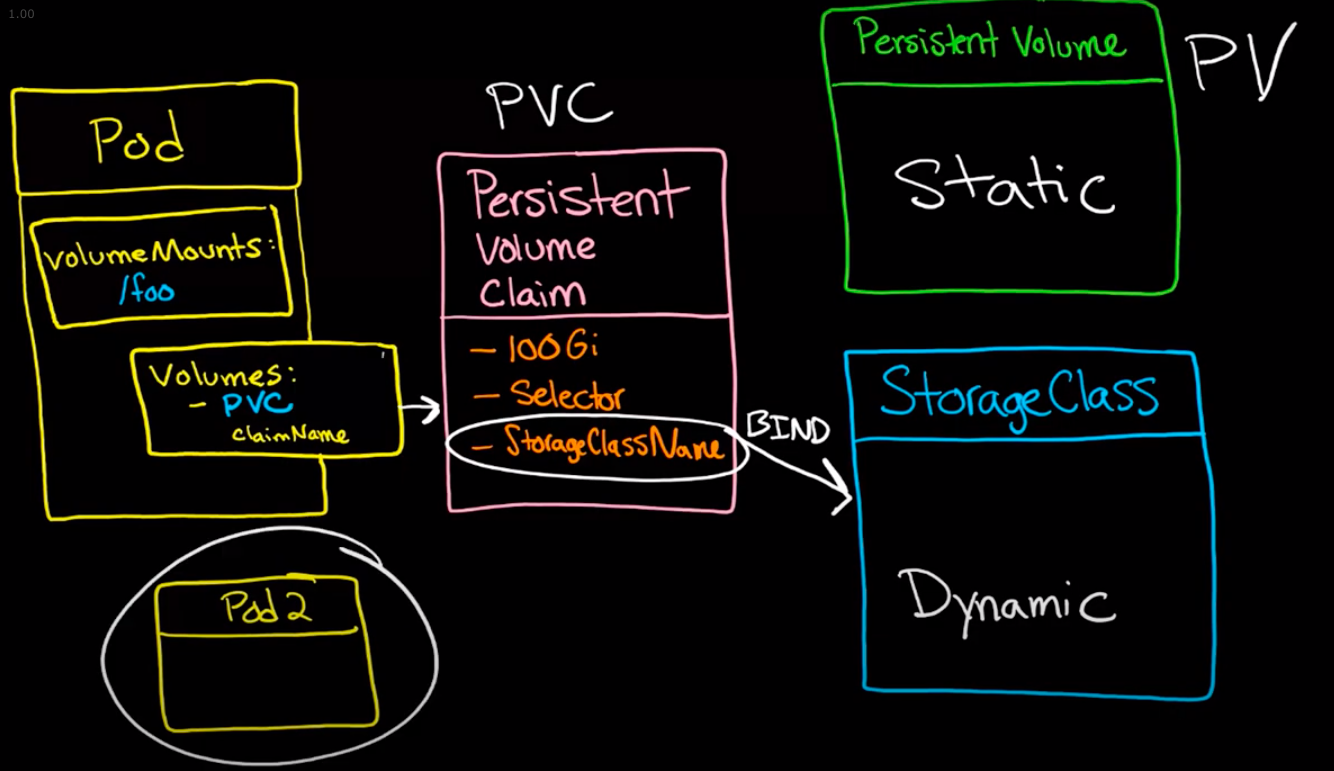 1.00
Pod
volumeMounts:
/foo
Volumes:
- PVC
claimName
Pod 2
PVC
Persistent
Volume
Claim
- 100Gi
- Selector
- StorageClassName
BIND
Persistent Volume
PV
Static
StorageClass
Dynamic